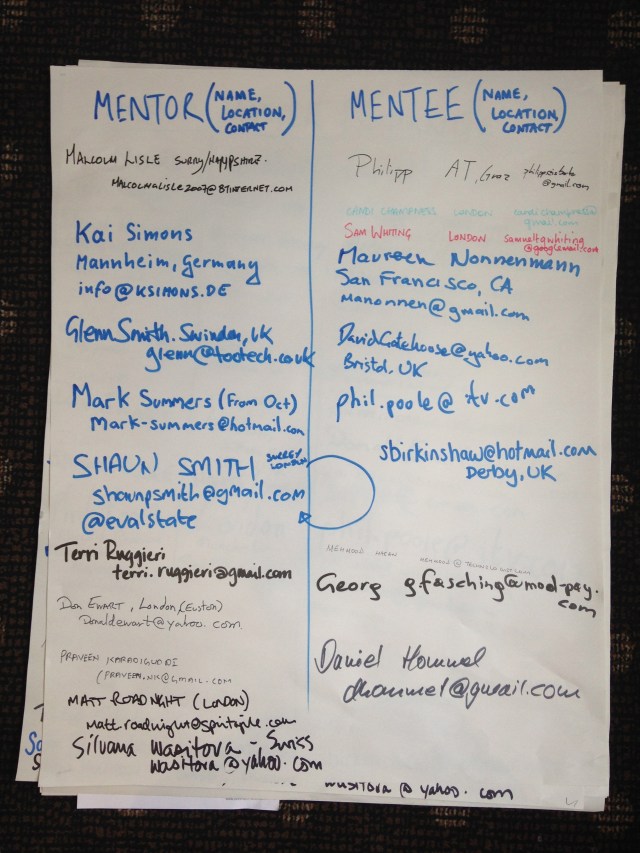 MENTOR (NAME,
LOCATION,
CONTACT)
MALCOLM LISLE SURRY/
MALCOLMALISLE2007@BTINTERNET.COM
Kai Simons
Mannheim, Germany
info@KSIMONS.DE
Glenn Smith. Swindon, UK
glenn@tootech.co.uk
Mark Summers (From Oct)
Mark-summers@hotmail.com
SHAUN SMITH SURREY
LONDON
shaunpsmith@gmail.com
@evalstate
Terri Ruggieri
terri.ruggieri@gmail.com
Don EWART, London, (Euston)
Donaldewart@yahoo.com
PRAVEEN KARADIGUDDI
(PRAVEEN.NK@GMAIL.COM
MATT ROADNIGHT (LONDON)
matt.roadnight@spiritagile.com
Silvana Wasitova - Swiss
wasitova@yahoo.com
MENTEE (NAME,
LOCATION,
CONTACT)
Philipp AT, Graz
@gmail.com
CANDI CHAMPNESS LONDON
gmail.com
SAM WHITING LONDON samueltgwhiting
@googlemail.com
Maureen Nonnenmann
San Francisco, CA
manonnen@gmail.com
DavidGatehouse@yahoo.com
Bristol, UK
phil.poole@itv.com
sbirkinshaw@hotmail.com
Derby, UK
MEHMOOD
Georg gfasching@mod-pay.
com
Daniel Hommel
dhommel@gmail.com
wasitova@yahoo.com